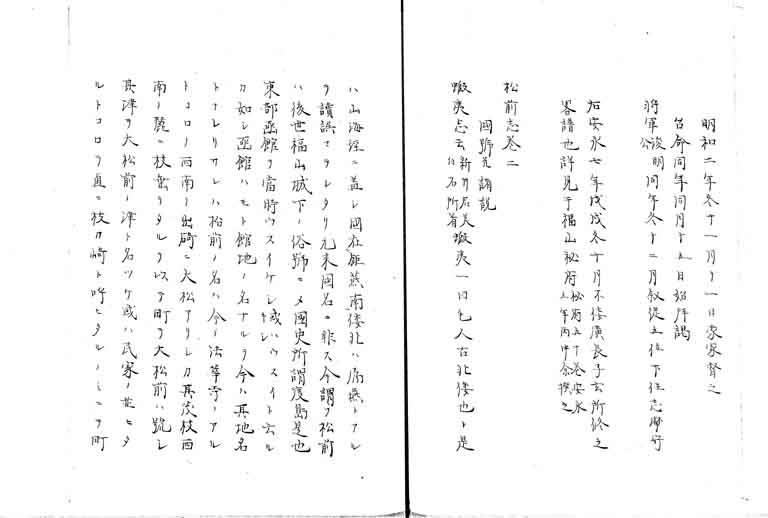 明和二年冬十一月十一日家家督之
台命同年同月十五日始拝謁
将軍浚明公同年冬十二月叙従五位下任志摩守
右安永七年戊戌冬十月不佞広長子玄所修之
畧譜也詳見于福山秘府秘府五十巻安永五年丙申余撰之
松前志巻二
国郡尤謂説
蝦夷志云新井君美白石所着蝦夷一曰毛人古北倭也ト是
ハ山海経ニ蓋シ国在鉅燕南倭北ハ属燕トアル
ヲ讀誤マラレタリ元来国名ニ非ス今謂ヲ松前
ハ後世福山城下ノ俗号ニメ國史所謂度島是也
東部凾館ヲ當時ウスイケシ或ハウスイト云ル
カ如シ凾館ハモト館地ノ名ナルヲ今ハ其地名
トナレリサレハ松前ノ名ハ今ノ法華寺ノアル
トコロノ西南ノ出崎ニ大松アリシカ其茂枝西
南ノ麓ニ枝垂リタル以テ町ヲ大松前ハ號シ
其津ヲ大松前ノ津ト名ツケ或ハ民家ノ並ヒタ
ルトコロヲ直ニ枝カ崎ト呼ヒタルノミニテ町